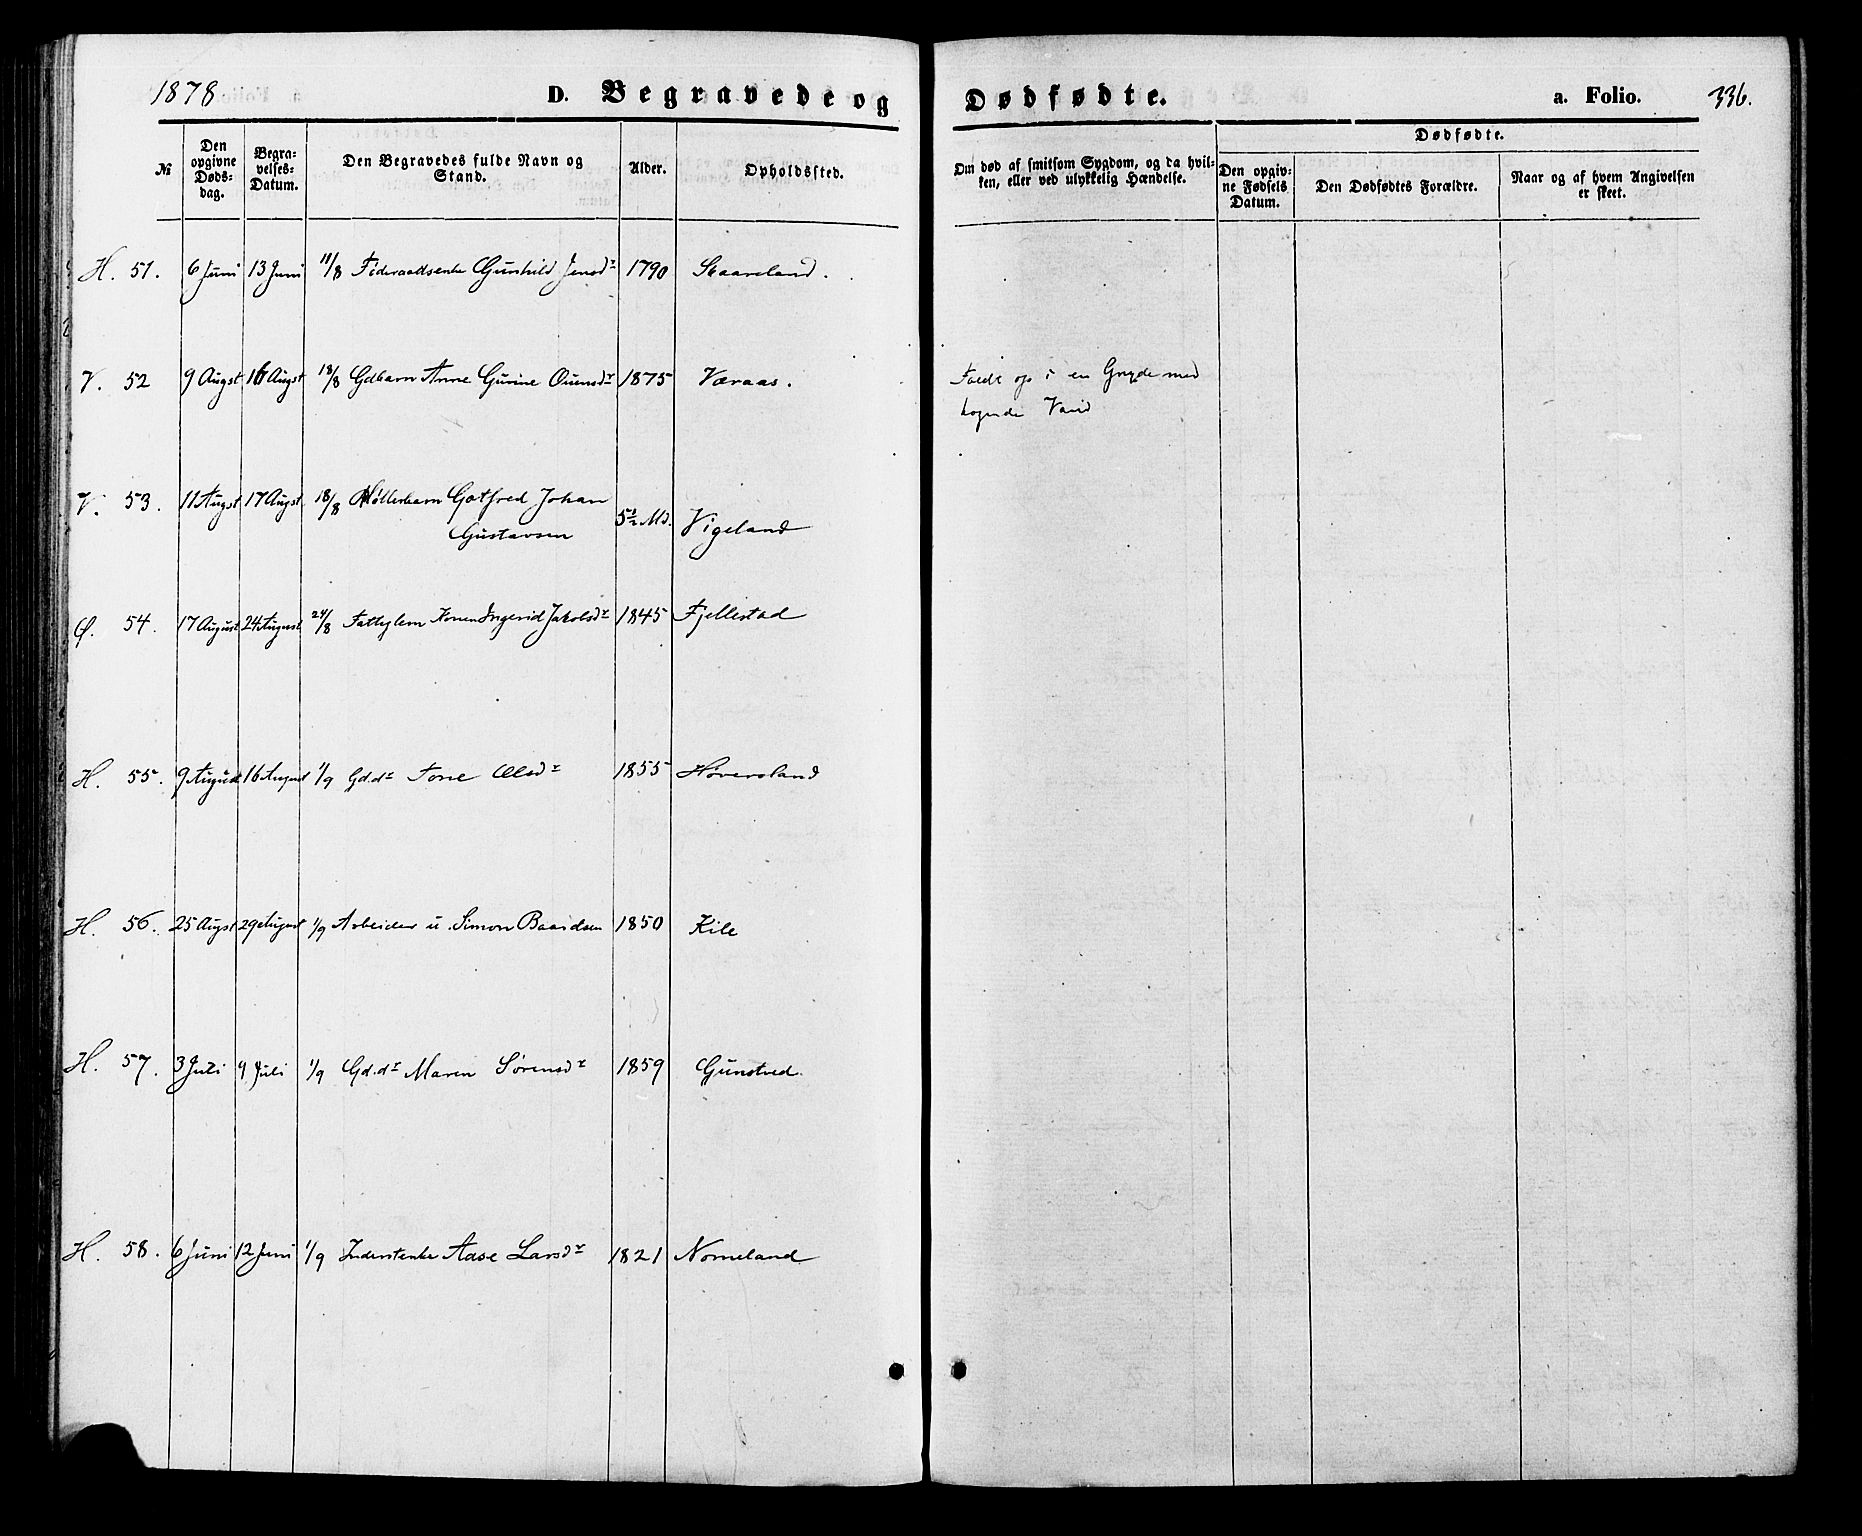 1878
D. Begravede og Dødfødte.
a. Folio. 336.
№
Den opgivne Døds-dag.
Begra-velses-Datum.
Den Begravedes fulde Navn og Stand.
Alder.
Opholdssted.
Om død af smitsom Sygdom, og da hvil-ken, eller ved ulykkelig Hændelse.
Dødfødte.
Den opgiv-ne Fødsels Datum.
Den Dødfødtes Forældre.
Naar og af hvem Angivelsen er skeet.
H. 51. 6 Juni 13 Juni 11/8 Føderaadsenke Gunhild Jensdr 1790 Skaareland.
V. 52 9 Augst 16 Augst 18/8 Gdbarn Anne Gurine Ouensdr 1875 Væraas. Faldt op i en Gryde med
kogende Vand
V. 53. 11 Augst 17 Augst 18/8 Møllerbarn Gotfred Johan
Gustavsen 5½ Md. Vigeland
Ø. 54. 17 August 24 August 24/8 Fattiglem Konen Ingerid Jakobsdr 1845 Fjellestad
H. 55. 9 August 16 August 1/9 Gd.dr Tone Olsdr 1855 Høversland
H. 56. 25 Augst 29 August 1/9 Arbeider u. Simon Baardsen 1850 Kile
H. 57. 3 Juli 9 Juli 1/9 Gd.dr Maren Sørensdr 1859 Gunstved.
H. 58. 6 Juni 12 Juni 1/9 Inderstenke Aase Larsdr 1821 Nomeland